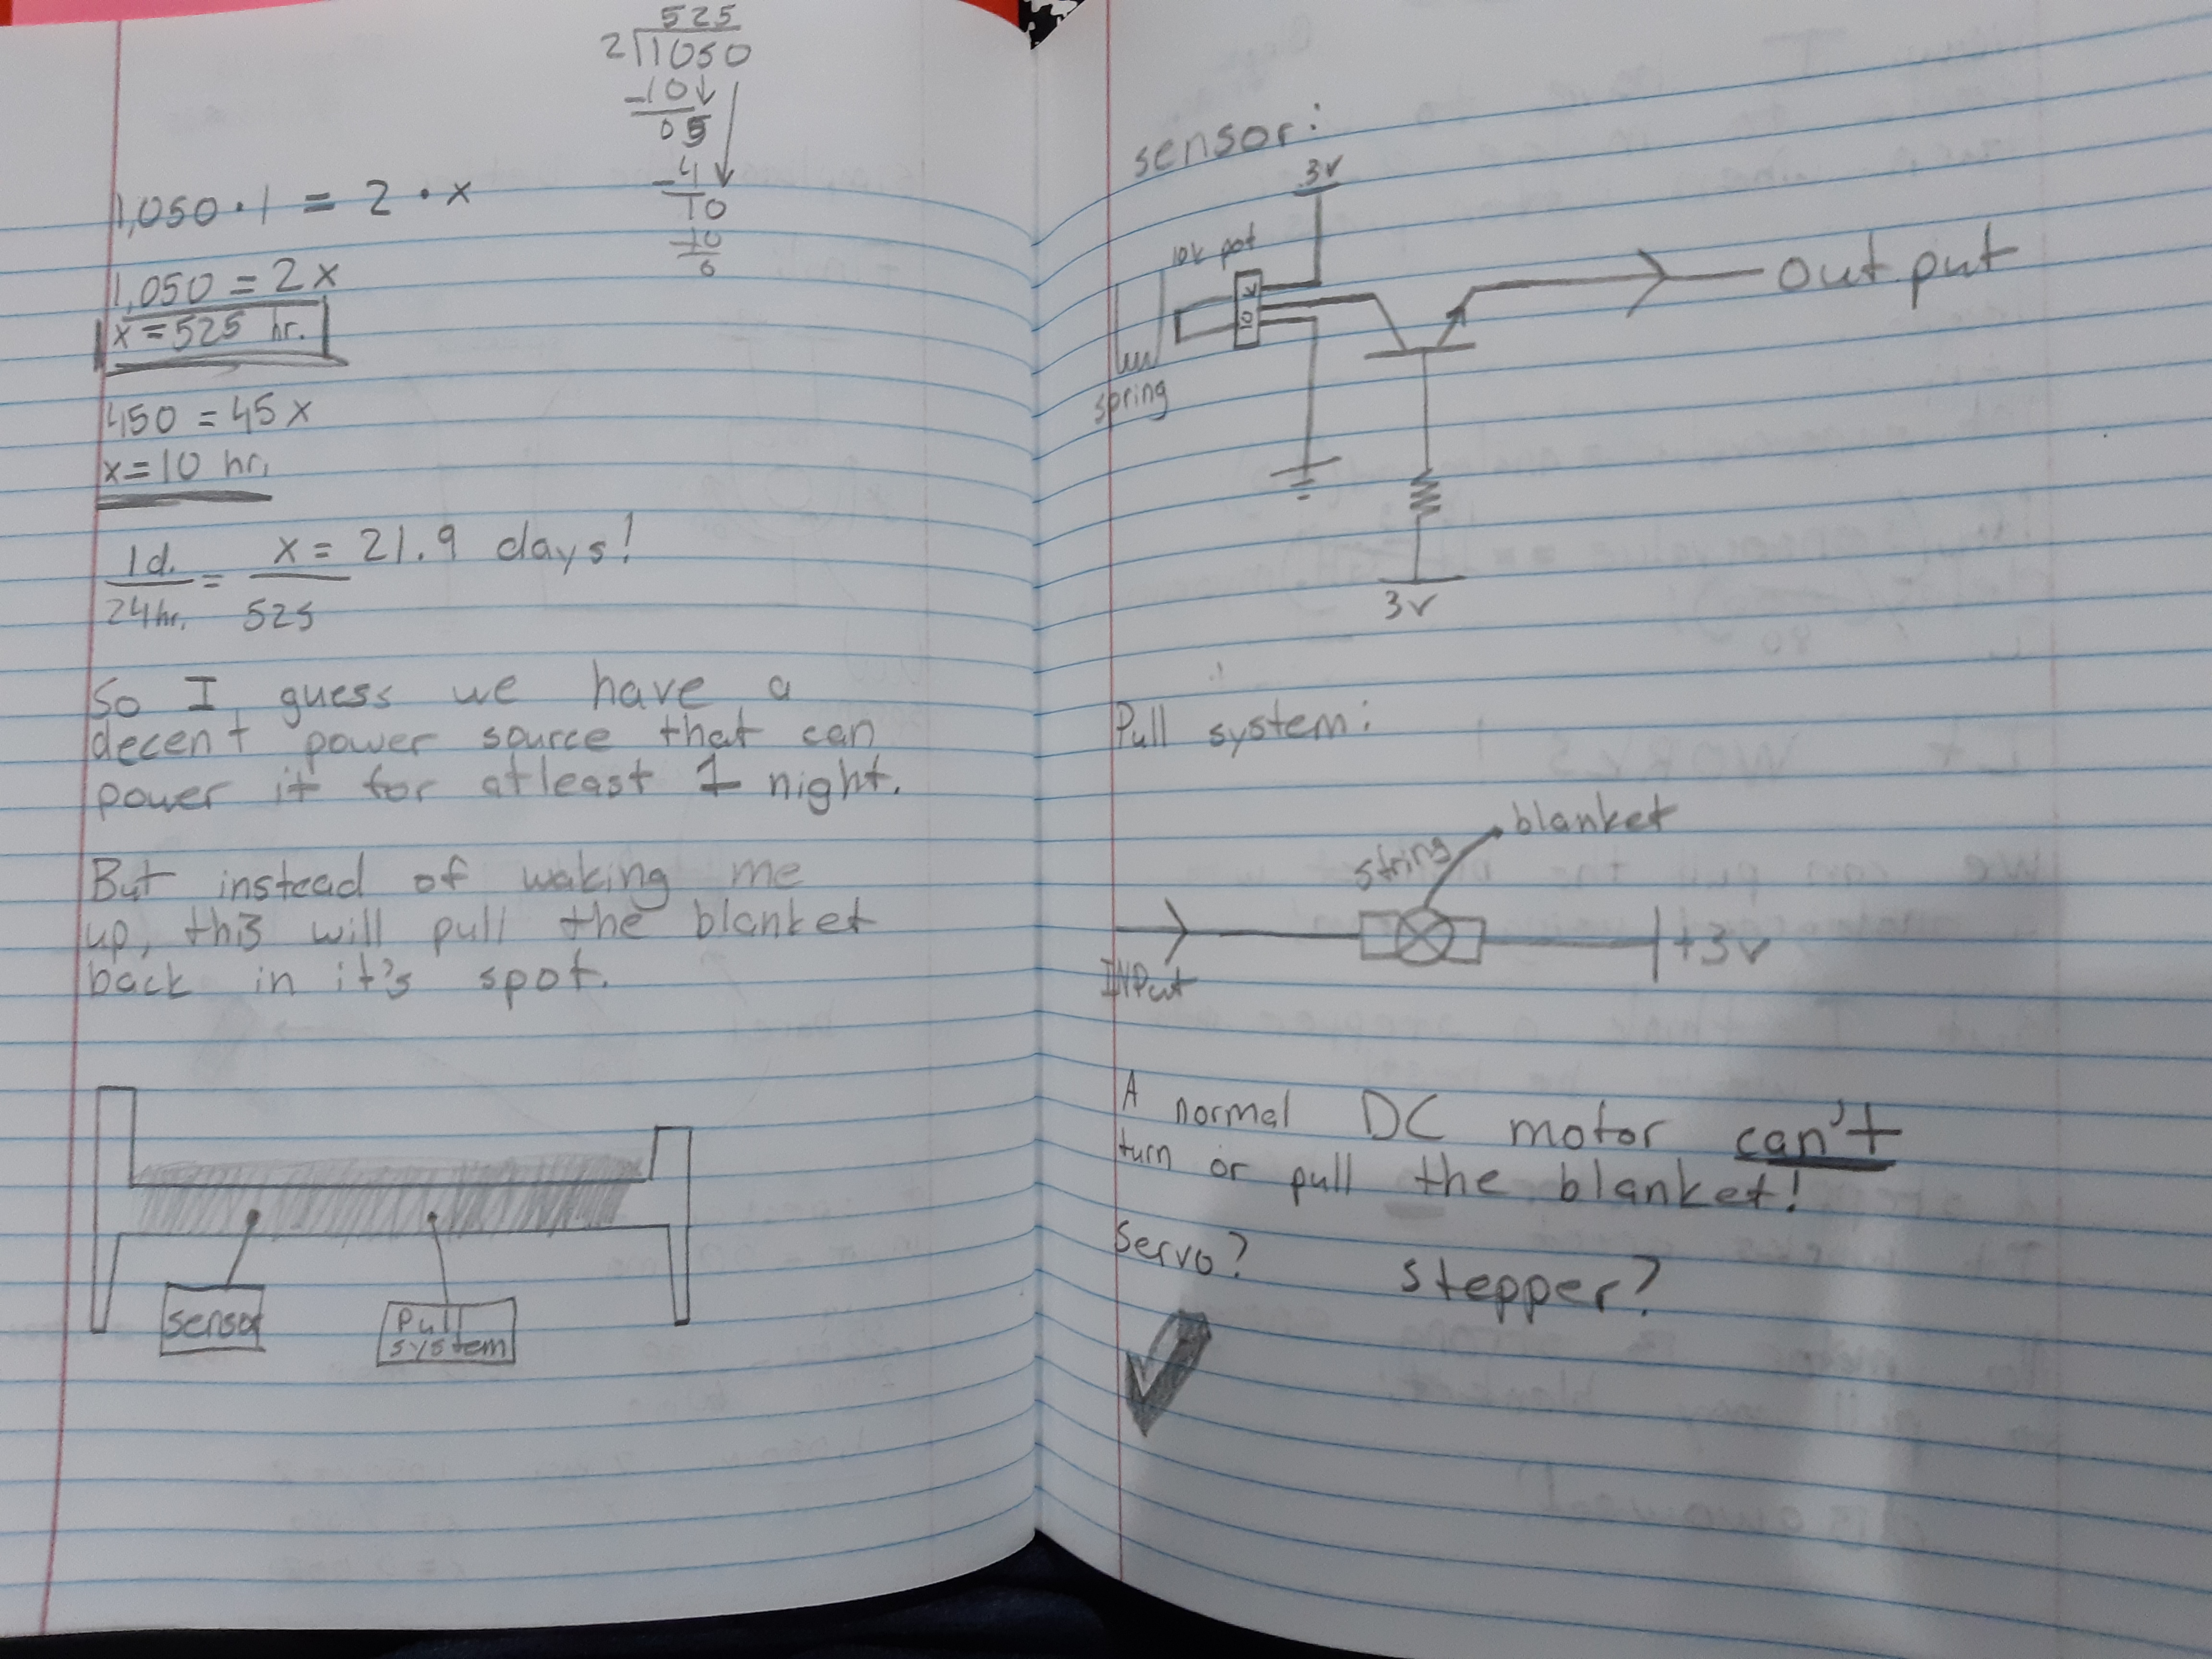 525
2 1050
-10
05
-4
10
-10
0
1,050 · 1 = 2 · x
1,050 = 2x
x = 525 hr.
450 = 45x
x = 10 hr.
1d. = x = 21.9 days!
24hr. 525
So I guess we have a
decent power source that can
power it for atleast 1 night.
But instead of waking me
up, this will pull the blanket
back in it's spot.
sensor
Pull
system
sensor:
3v
10k pot
10k
output
spring
3v
Pull system:
blanket
string
INPut
+3v
A normal DC motor can't
turn or pull the blanket!
Servo? stepper?